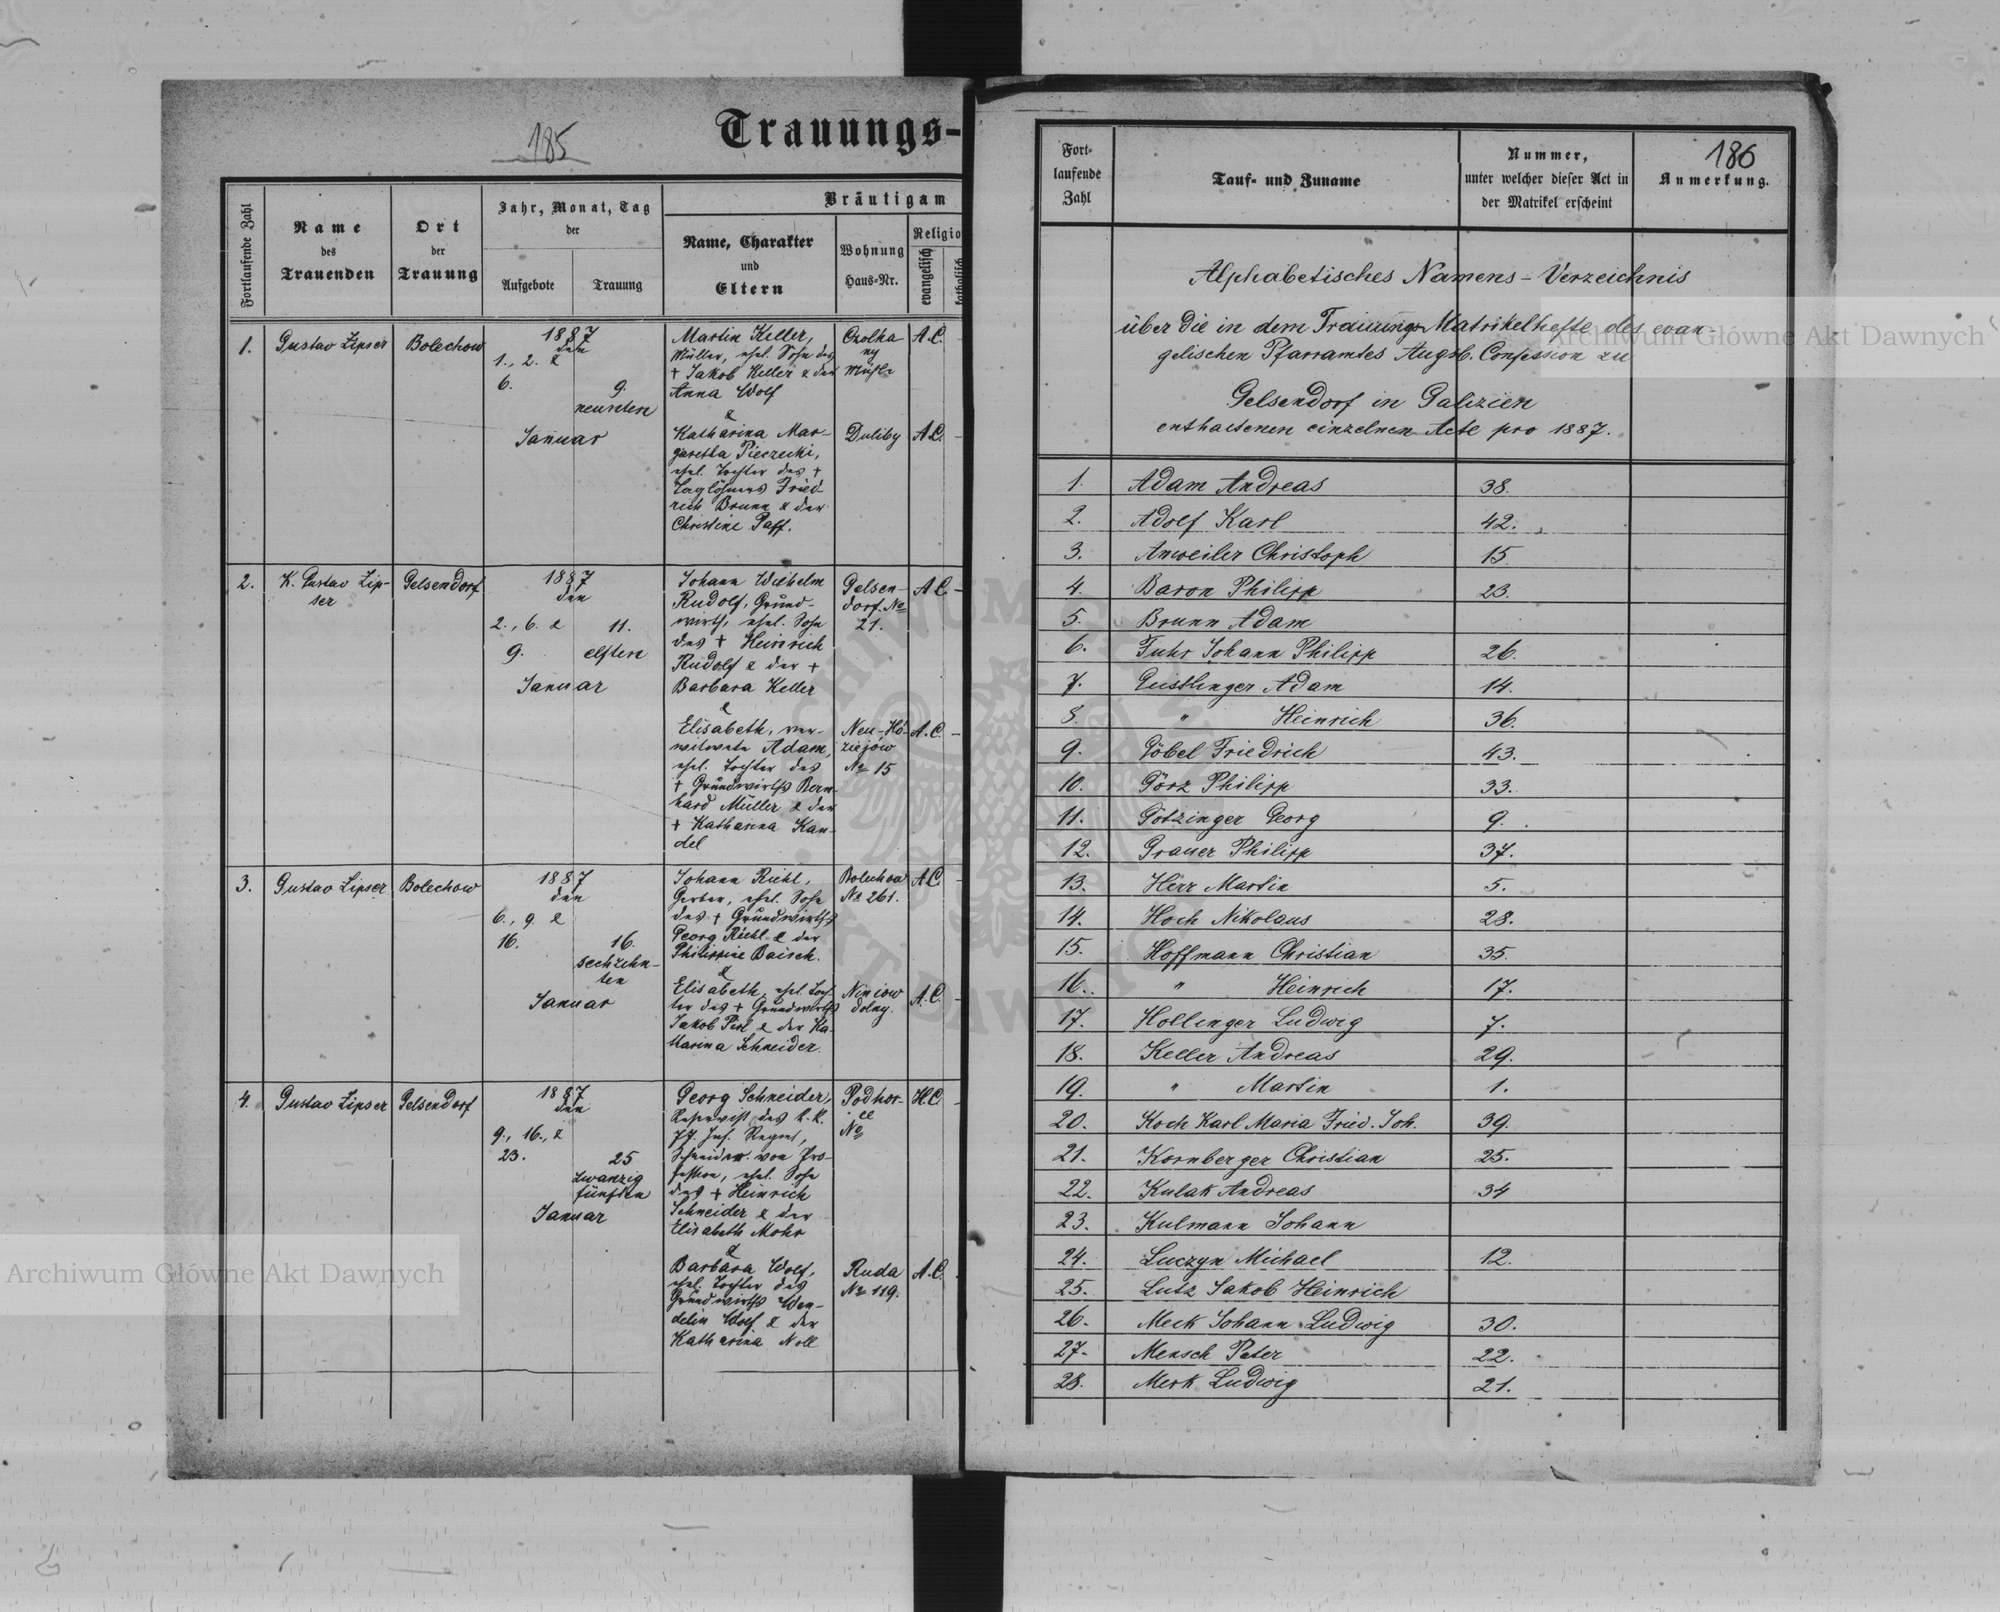 185
Trauungs-
Fortlaufende Zahl
Name
des
Trauenden
Ort
der
Trauung
Jahr, Monat, Tag
der
Aufgebote
Trauung
Bräutigam
Name, Charakter
und
Eltern
Wohnung
Haus-Nr.
Religio
evangelisch
katholisch
1.
Gustav Lipser
Bolechow
1887
den
1., 2. &
6.
9.
neunten
Januar
Martin Keller,
Müller, ehel. Sohn des
+ Jakob Keller & der
Anna Wolf
&
Katharina Mar-
garetha Pieczecki,
ehel. Tochter des +
Taglöhners Fried-
rich Brunn & der
Christine Paff.
Czolha
ny
Mühle
A.C.
Duliby
A.C.
2.
K. Gustav Lip-
ser
Gelsendorf
1887
den
2., 6. &
9.
11.
elften
Januar
Johann Wilhelm
Rudolf, Grund-
wirth, ehel. Sohn
des + Heinrich
Rudolf & der +
Barbara Keller
&
Elisabeth, ver-
witwete Adam,
ehel. Tochter des
+ Grundwirths Bern-
hard Müller & der
+ Katharina Kan-
del
Gelsen-
dorf. No
21.
A.C.
Neu-Ho-
ziejów
No 15
A.C.
3.
Gustav Lipser
Bolechow
1887
den
6., 9. &
16.
16.
sechzehn-
ten
Januar
Johann Riehl,
Gerber, ehel. Sohn
des + Grundwirths
Georg Riehl & der
Philippine Baisch.
&
Elisabeth, ehel. Toch-
ter des + Grundwirths
Jakob Pirl & der Ka-
tharina Schneider.
Bolechow
No 261.
A.C.
Niniow
dolny.
A.C.
4.
Gustav Lipser
Gelsendorf
1887
den
9., 16., &
23.
25
zwanzig
fünften
Januar
Georg Schneider,
Reservist des k.k.
77. Inf. Regmt,
Schneider von Pro-
fession, ehel. Sohn
des + Heinrich
Schneider & der
Elisabeth Mohr
&
Barbara Wolf,
ehel. Tochter des
Grundwirths Wen-
delin Wolf & der
Katharina Noll
Podhor-
ce
No
H.C.
Ruda
No 119.
A.C.
186
Fort-
laufende
Zahl
Tauf- und Zuname
Nummer,
unter welcher dieser Act in
der Matrikel erscheint
Anmerkung.
Alphabetisches Namens-Verzeichnis
über die in dem Trauungs-Matrikelhefte des evan-
gelischen Pfarramtes Augsb. Confession zu
Gelsendorf in Galizien
enthaltenen einzelnen Acte pro 1887.
1. Adam Andreas 38.
2. Adolf Karl 42.
3. Anweiler Christoph 15
4. Baron Philipp 23.
5. Brunn Adam
6. Fuhr Johann Philipp 26.
7. Geistlinger Adam 14.
8. " Heinrich 36.
9. Göbel Friedrich 43.
10. Görz Philipp 33.
11. Götzinger Georg 9.
12. Grauer Philipp 37.
13. Herr Martin 5.
14. Hoch Nikolaus 28.
15. Hoffmann Christian 35.
16. " Heinrich 17.
17. Hollinger Ludwig 7.
18. Keller Andreas 29.
19. " Martin 1.
20. Koch Karl Maria Fried. Joh. 39.
21. Kornberger Christian 25.
22. Kulak Andreas 34
23. Kulmann Johann
24. Luczyn Michael 12.
25. Lutz Jakob Heinrich
26. Meck Johann Ludwig 30.
27. Mensch Peter 22.
28. Merk Ludwig 21.
Archiwum Główne Akt Dawnych
Archiwum Główne Akt Dawnych